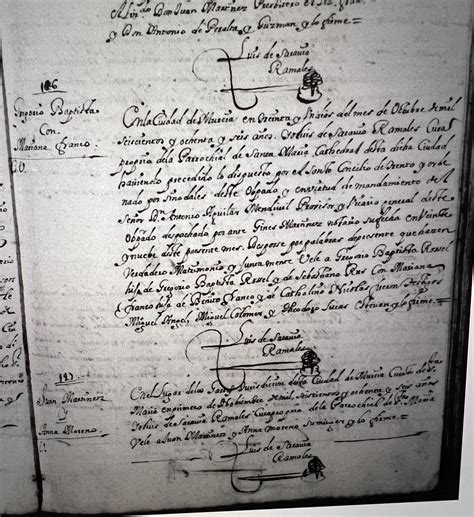 Don Juan Martinez Presbitero
y Don Antonio de Peralta y Guzman y lo firme =
Luis de Saravia
Ramales
Gregorio Baptista
Con
Mariana franco
En la Ciudad de Murcia en veinte y dias del mes de Otubre de mil
Seiscientos y ochenta y seis años. Yo luis de Saravia Ramales Cura
proprio de la Parrochial de Santa Maria Cathedral desta dicha Ciudad
haviendo precedido lo dispuesto por el Santo Concilio de trento y orde
nado por sinodales deste Obpado y en virtud de mandamiento del
Señor Dn Antonio Aguilar Mendivil Provisor y Vicario general deste
Obpado despachado por ante Gines Martinez notario su fecha en veinte
y nueve deste presente mes. Despose por palabras de presente que hazen
Verdadero Matrimonio y Juntamente Vele a Gregorio Baptista Rossel
hijo de Gregorio Baptista Rossel y de Sebastiana Con Mariana
franco hija de Benito franco y de Catholina Nicolas siendo testigos
Miguel Angel, Miguel Colomer y Theodosio y lo firme =
Luis de Saravia
Ramales
147
Juan Martinez
y
Anna Moreno
En el Lugar de Jurisdicion desta Ciudad de Murcia
en primero de de mil seiscientos y ochenta y seis años
Yo luis de Saravia Ramales Cura proprio de la Parrochial de Sta Maria
Vele a Juan Martinez y Anna moreno su muger y lo firme =
Luis de Saravia
Ramales